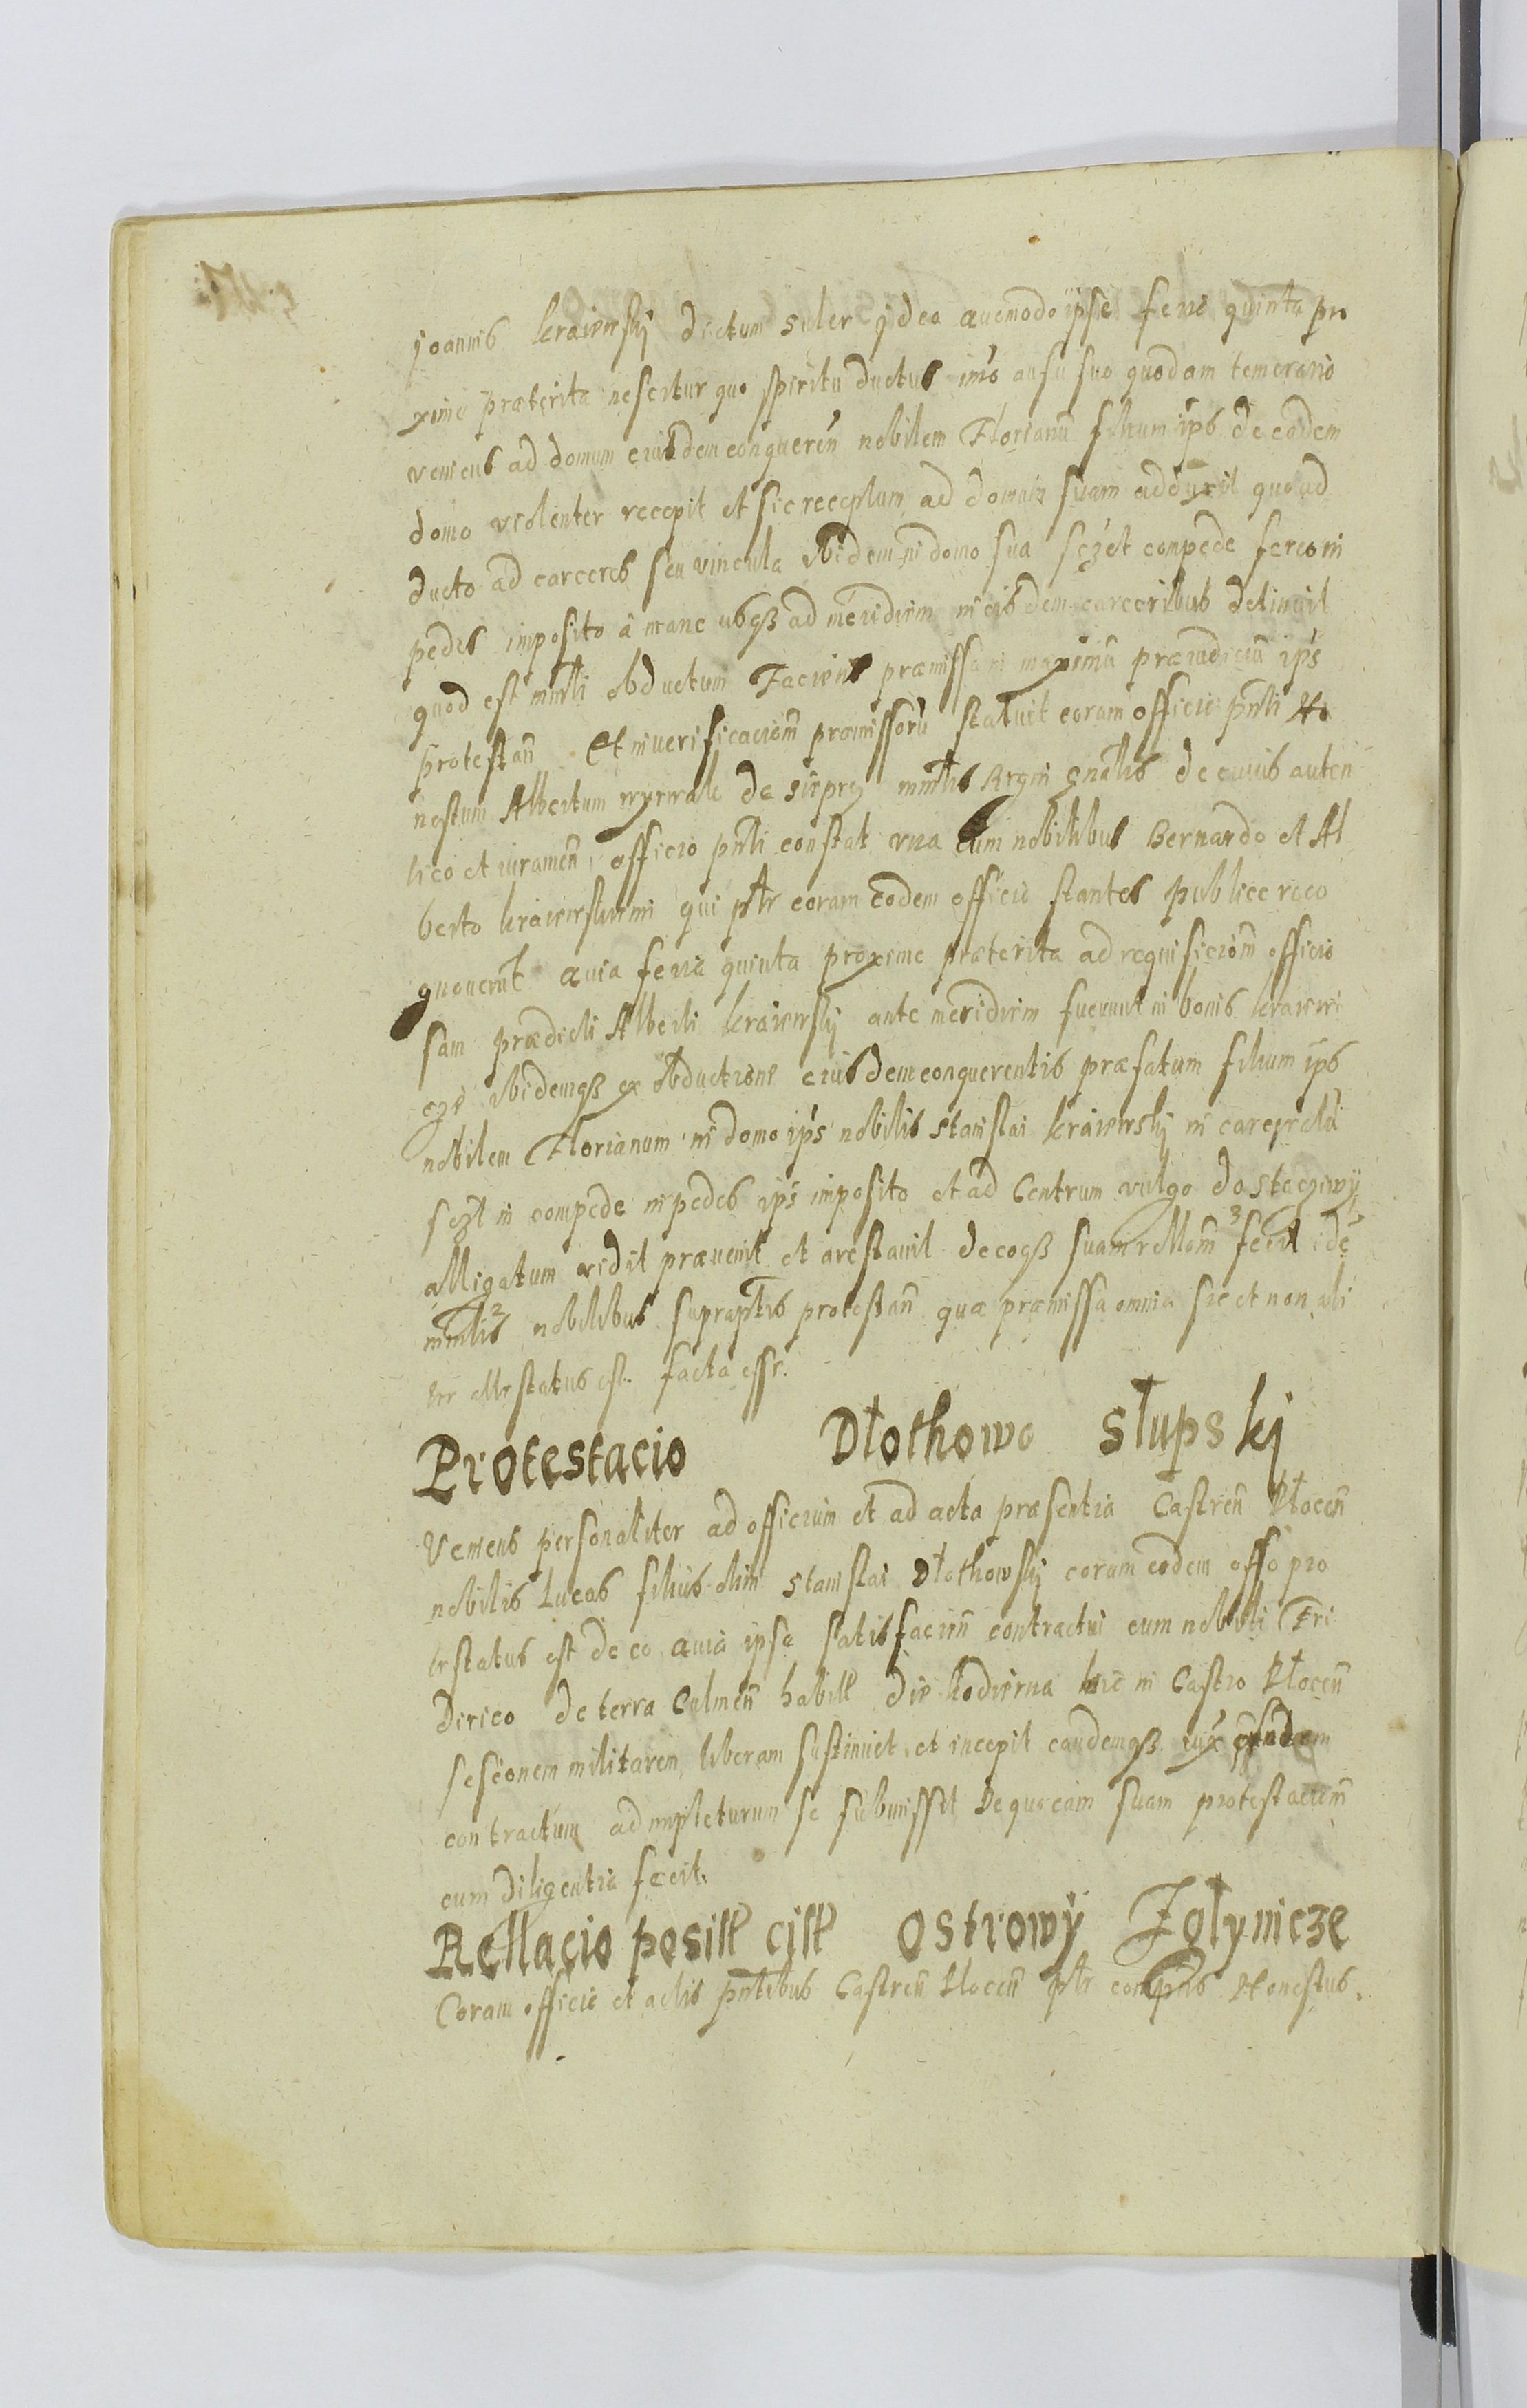 Joannis kraiewskj dictum suler ideo quomodo ipse feria quinta pro
xime præterita nescitur quo spiritu ductus imo ausu suo quodam temerario
veniens ad domum eiusdem conqueren̄ nobilem Florianū filium ips de eadem
domo violenter recepit et sic receptum ad domum suam adduxit quo ad
ducto ad carceres seu vincula ibidem in domo sua sczet conpede fereo in
pedes imposito a mane usqß ad meridiem in eisdem carceribus detinuit
quod est mrłi obductum Faciens præmissa in maximū præiudiciū ips
protestan̄ Et in verificaciom̄ præmissorū statuit coram officio pn̄ti Ho
nestum Albertum wyrwale de sierpcz mrłis Regni gnałis de cuius auten
tico et iuramen̄ officio pn̄ti constat vna cum nobilibus Bernardo et Al
berto kraiewskimi qui ptr coram eodem officio stantes publice reco
gnouerūt quia feria quinta proxime præterita ad requisiciom̄ officio
sam prædicti Alberti kraiewskj ante meridiem fuerunt in bonis kraiewi
cze ibidemqß ex obductione eiusdem conquerentis præfatum filium ips
nobilem Florianum in domo ips nobilis stanislai kraiewskj in carere
sczt in compede in pedes ips imposito et ad Centrum vulgo do steczewÿ
alligatum vidit præuenit et arestauit de eoqß suam rellom̄ 3 fecit idē
mrłis 2 nobilibus supraptis protestan̄ quæ præmissa omnia sic et non ali
ter attestatus est facta esse.
Protestacio Dłothowo słupskj
Veniens personaliter ad officium et ad acta præsentia Castren̄ Płocen̄
nobilis Lucas filius olim stanislai Dłothowskj coram eodem offo pro
testatus est de eo quia ipse satisfacien̄ contractui cum nobili Fri
derico de terra Culmen̄ habitt die hodierna hic in Castro Płocen̄
sescionem militarem liberam sustinuit et incepit eandemqß iux
contractum adimpleturum se submissit De quo eam suam protestaciom̄
cum diligentia fecit.
Rellacio positt citt Ostrowÿ Zgłynicze
Coram officio et actis pn̄tibus Castren̄ Płocen̄ ptr compn̄s Honestus.